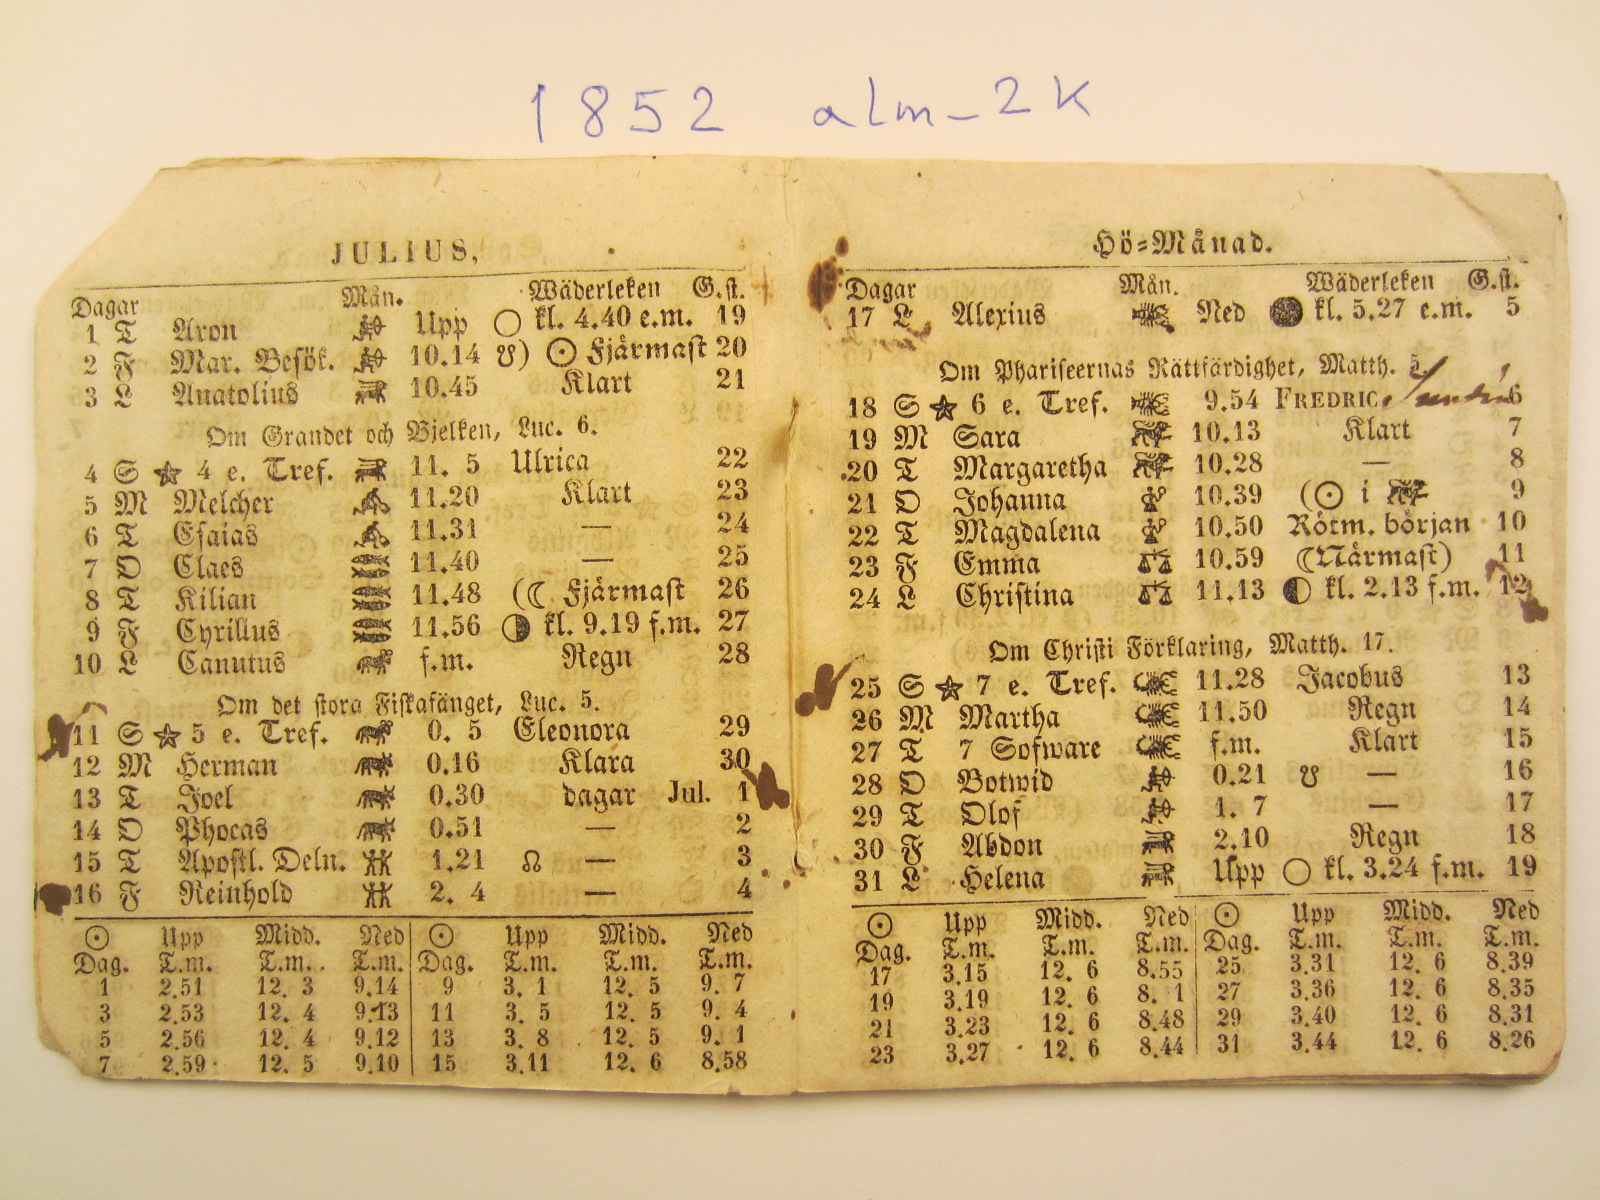 1852 alm-2K
JULIUS,
Dagar Mån. Wäderleken G.st.
1 T Aron Upp ○ kl. 4.40 e.m. 19
2 F Mar. Besök. 10.14 ☋) ☉ Fjärmast 20
3 L Anatolius 10.45 Klart 21
Om Grandet och Bjelken, Luc. 6.
4 S ★ 4 e. Tref. 11. 5 Ulrica 22
5 M Melcher 11.20 Klart 23
6 T Esaias 11.31 — 24
7 O Claes 11.40 — 25
8 T Kilian 11.48 (☾ Fjärmast 26
9 F Cyrillus 11.56 ◑ kl. 9.19 f.m. 27
10 L Canutus f.m. Regn 28
Om det stora Fiskafänget, Luc. 5.
11 S ★ 5 e. Tref. 0. 5 Eleonora 29
12 M Herman 0.16 Klara 30
13 T Joel 0.30 dagar Jul. 1
14 O Phocas 0.51 — 2
15 T Apostl. Deln. 1.21 ☊ — 3
16 F Reinhold 2. 4 — 4
☉ Upp Midd. Ned ☉ Upp Midd. Ned
Dag. T.m. T.m. T.m. Dag. T.m. T.m. T.m.
1 2.51 12. 3 9.14 9 3. 1 12. 5 9. 7
3 2.53 12. 4 9.13 11 3. 5 12. 5 9. 4
5 2.56 12. 4 9.12 13 3. 8 12. 5 9. 1
7 2.59 12. 5 9.10 15 3.11 12. 6 8.58
Hö-Månad.
Dagar Mån. Wäderleken G.st.
17 L Alexius Ned ● kl. 5.27 e.m. 5
Om Phariseernas Rättfärdighet, Matth. 5.
18 S ★ 6 e. Tref. 9.54 FREDRIC. 6
19 M Sara 10.13 Klart 7
20 T Margaretha 10.28 — 8
21 O Johanna 10.39 (☉ i ♌ 9
22 T Magdalena 10.50 Rötm. början 10
23 F Emma 10.59 (Närmast) 11
24 L Christina 11.13 ◐ kl. 2.13 f.m. 12
Om Christi Förklaring, Matth. 17.
25 S ★ 7 e. Tref. 11.28 Jacobus 13
26 M Martha 11.50 Regn 14
27 T 7 Sofware f.m. Klart 15
28 O Botwid 0.21 ☋ — 16
29 T Olof 1. 7 — 17
30 F Abdon 2.10 Regn 18
31 L Helena Upp ○ kl. 3.24 f.m. 19
☉ Upp Midd. Ned ☉ Upp Midd. Ned
Dag. T.m. T.m. T.m. Dag. T.m. T.m. T.m.
17 3.15 12. 6 8.55 25 3.31 12. 6 8.39
19 3.19 12. 6 8. 1 27 3.36 12. 6 8.35
21 3.23 12. 6 8.48 29 3.40 12. 6 8.31
23 3.27 12. 6 8.44 31 3.44 12. 6 8.26